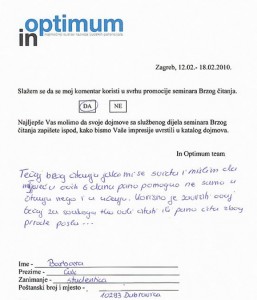 in optimum
Zagreb, 12.02.- 18.02.2010.
Slažem se da se moj komentar koristi u svrhu promocije seminara Brzog čitanja.
DA NE
Najljepše Vas molimo da svoje dojmove sa službenog dijela seminara Brzog
čitanja zapišete ispod, kako bismo Vaše impresije uvrstili u katalog dojmova.
In Optimum team
Tečaj brzog čitanja jako mi se svidio i mislim da
mi je u ovih 6 dana puno pomogao ne samo u
čitanju nego i u učenju. Korisno je završiti ovaj
tečaj za svakoga tko voli čitati ili puno čita zbog
prirode posla...
Ime - Barbara
Prezime -
Zanimanje - studentica
Poštanski broj i mjesto - 10293 Dubravica